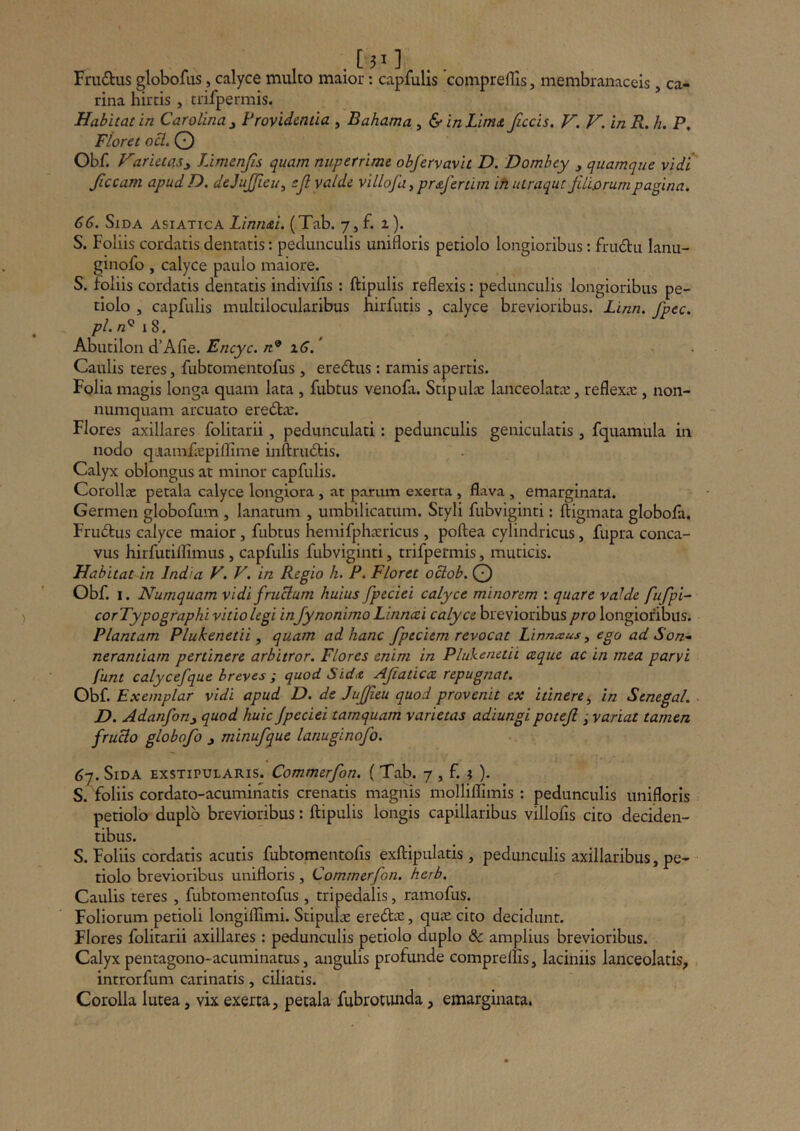 [ 31 ]
Fructus globoſus, calyce multo maior: capſulis compreſſis, membranaceis, ca-
rina hirtis, triſpermis.
Habitat in Carolina, Providentia, Bahama, & in Limæ ſiccis. V. V. in R. h. P.
Floret oct. ☉
Obſ. Varietas, Limenſis quam nuperrime obſervavit D. Dombey, quamque vidi
ſiccam apud D. deJuſſieu, eſt valde villoſa, præſertim in utraque filiorum pagina.
66. SIDA ASIATICA Linnæi. (Tab. 7, f. 2).
S. Foliis cordatis dentatis: pedunculis unifloris petiolo longioribus: fructu lanu-
ginoſo, calyce paulo maiore.
S. foliis cordatis dentatis indiviſis: ſtipulis reflexis: pedunculis longioribus pe-
tiolo, capſulis multilocularibus hirſutis, calyce brevioribus. Linn. ſpec.
pl. nº 18.
Abutilon d'Aſie. Encyc. nº 26.
Caulis teres, ſubtomentoſus, erectus: ramis apertis.
Folia magis longa quam lata, ſubtus venoſa. Stipulæ lanceolatæ, reflexæ, non-
numquam arcuato erectæ.
Flores axillares ſolitarii, pedunculati: pedunculis geniculatis, ſquamula in
nodo quamſæpiſſime inſtructis.
Calyx oblongus at minor capſulis.
Corollæ petala calyce longiora, at parum exerta, flava, emarginata.
Germen globoſum, lanatum, umbilicatum. Styli ſubviginti: ſtigmata globoſa.
Fructus calyce maior, ſubtus hemiſphæricus, poſtea cylindricus, ſupra conca-
vus hirſutiſſimus, capſulis ſubviginti, triſpermis, muticis.
Habitat in India V. V. in Regio h. P. Floret octob. ☉
Obſ. I. Numquam vidi fructum huius ſpeciei calyce minorem: quare valde ſuſpi-
cor Typographi vitio legi in ſynonimo Linnæi calyce brevioribus pro longioribus.
Plantam Plukenetii, quam ad hanc ſpeciem revocat Linnæus, ego ad Son-
nerantiam pertinere arbitror. Flores enim in Plukenetii æque ac in mea parvi
ſunt calyceſque breves; quod Sidæ Aſiaticæ repugnat.
Obſ. Exemplar vidi apud D. de Juſſieu quod provenit ex itinere, in Senegal.
D. Adanſon, quod huic ſpeciei tamquam varietas adiungi poteſt; variat tamen
fructo globoſo, minuſque lanuginoſo.
67. SIDA EXSTIPULARIS. Commerſon. (Tab. 7, f. 3).
S. foliis cordato-acuminatis crenatis magnis molliſſimis: pedunculis unifloris
petiolo duplo brevioribus: ſtipulis longis capillaribus villoſis cito deciden-
tibus.
S. Foliis cordatis acutis ſubtomentoſis exſtipulatis, pedunculis axillaribus, pe-
tiolo brevioribus unifloris, Commerſon. herb.
Caulis teres, ſubtomentoſus, tripedalis, ramoſus.
Foliorum petioli longiſſimi. Stipulæ erectæ, quæ cito decidunt.
Flores ſolitarii axillares: pedunculis petiolo duplo & amplius brevioribus.
Calyx pentagono-acuminatus, angulis profunde compreſſis, laciniis lanceolatis,
introrſum carinatis, ciliatis.
Corolla lutea, vix exerta, petala ſubrotunda, emarginata.